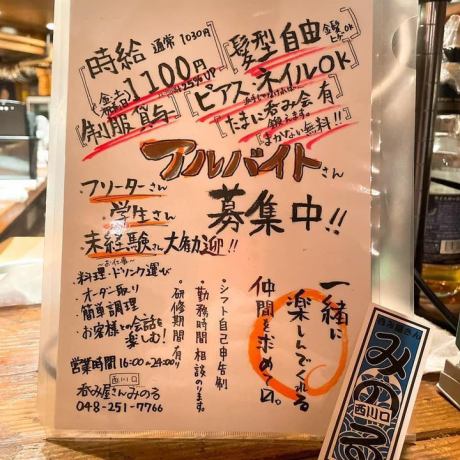 時給 通常1030円
《金・土・祝》1100円
25%UP
制服貸与
髪型自由 金髪ヒゲOK
ピアス・ネイルOK
たまに呑み会有
まかない無料!!
アルバイトさん
募集中!!
・フリーターさん
・学生さん
・未経験さん大歓迎!!
～お仕事～
・料理・ドリンク運び
・オーダー取り
・簡単調理
・お客様との会話を楽しむ!
・シフト自己申告制
・勤務時間相談のります。
・研修期間有り
一緒に
楽しんでくれる
仲間を求めて〼。
営業時間 16:00～24:00
西川口
呑み屋さんみのる
048-251-7766
呑み屋さん
みのる
西川口